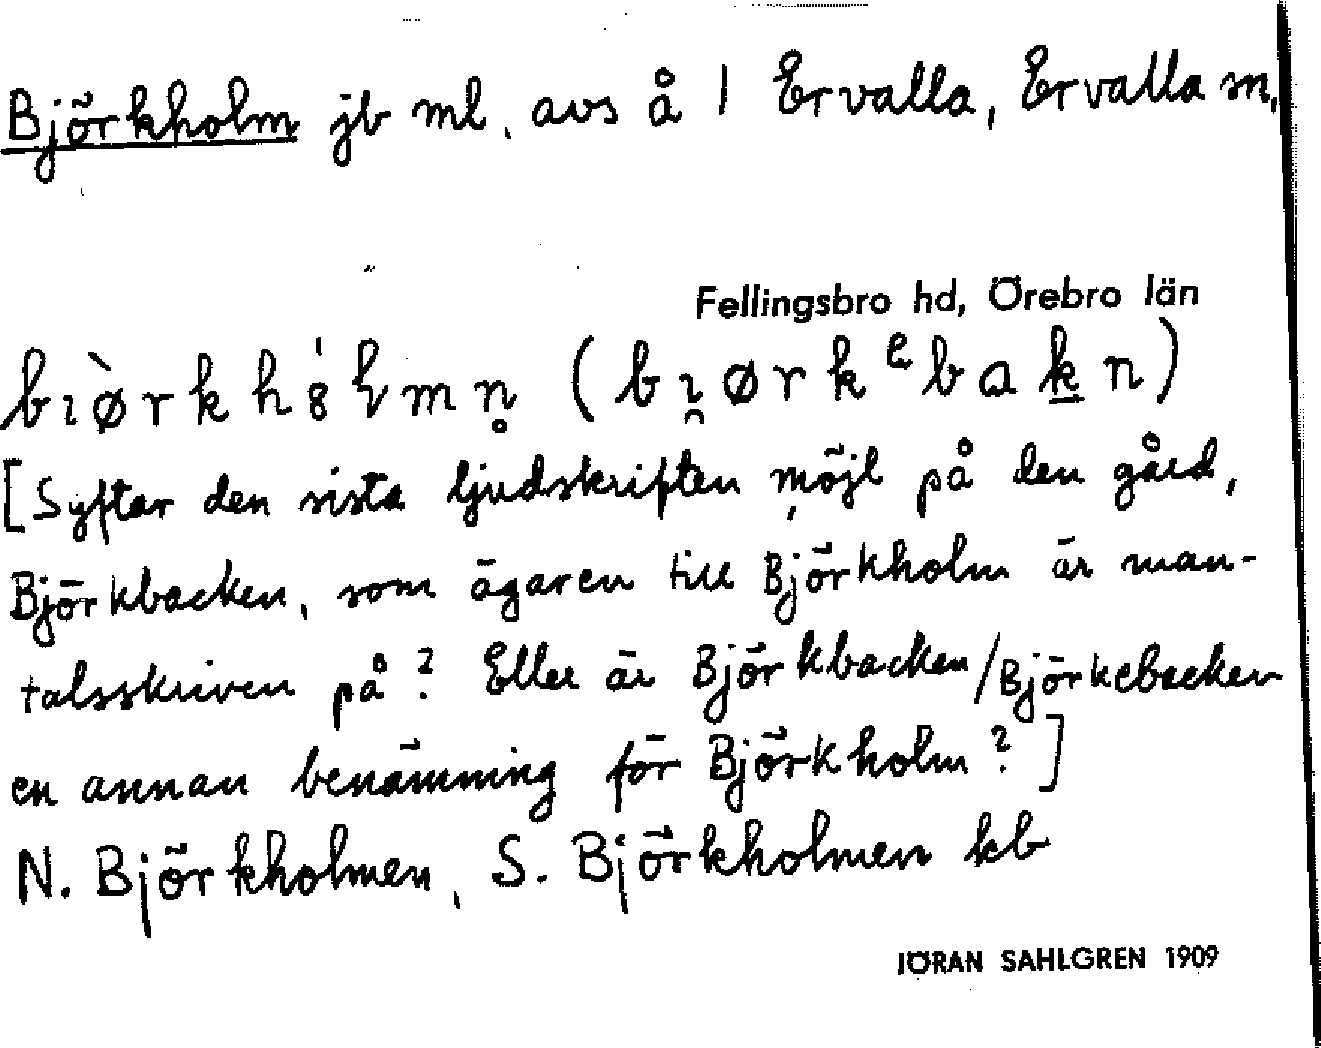 Björkholm jb ml. avs å 1 Ervalla, Ervalla sn,
Fellingsbro hd, Örebro län
bıòrkhólmn̥ (bı̯ørkᵉbaḵn)
[Syftar den sista ljudskriften möjl på den gård,
Björkbacken, som ägaren till Björkholm är man-
talsskriven på? Eller är Björkbacken/Björkebacken
en annan benämning för Björkholm?]
N. Björkholmen, S. Björkholmen kb
JÖRAN SAHLGREN 1909